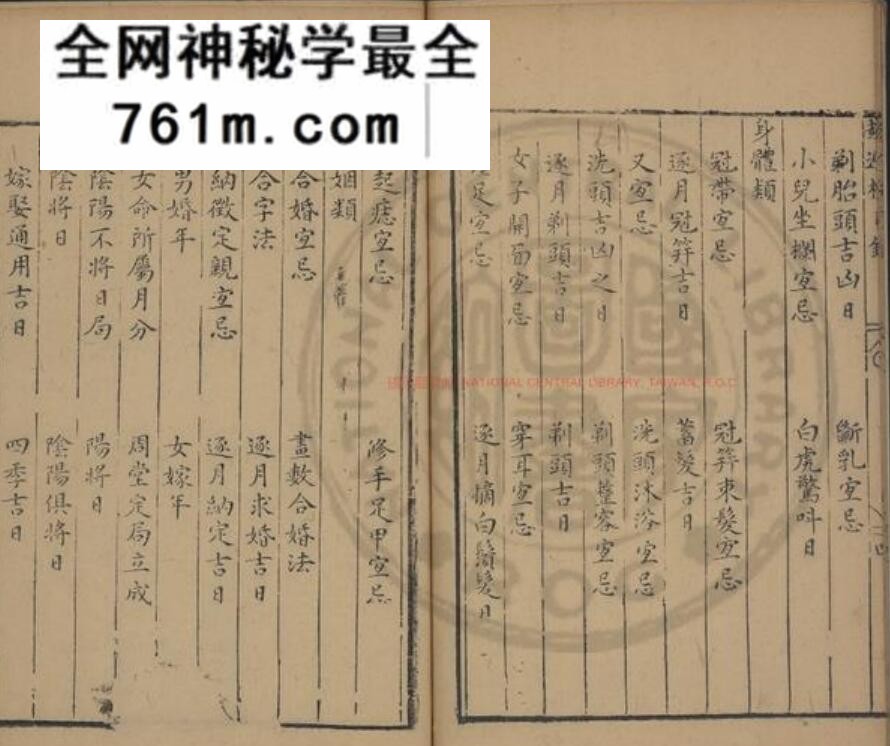 全网神秘学最全
761m.com
剃胎頭吉凶日
斷乳宜忌
小兒坐欄宜忌
白虎驚呌日
身體類
冠帶宜忌
冠笄束髮宜忌
逐月冠笄吉日
蓄髮吉日
又宜忌
洗頭沐浴宜忌
洗頭吉凶之日
剃頭整容宜忌
逐月剃頭吉日
剃頭吉日
女子開面宜忌
穿耳宜忌
足宜忌
逐月摘白鬚髮日
起痣宜忌
修手足甲宜忌
姻類
合婚宜忌
畫數合婚法
合字法
逐月求婚吉日
納徵定親宜忌
逐月納定吉日
男婚年
女嫁年
女命所屬月分
周堂定局立成
陰陽不將日局
陽將日
陰將日
陰陽俱將日
嫁娶通用吉日
四季吉日
國 NATIONAL CENTRAL LIBRARY, TAIWAN, R.O.C